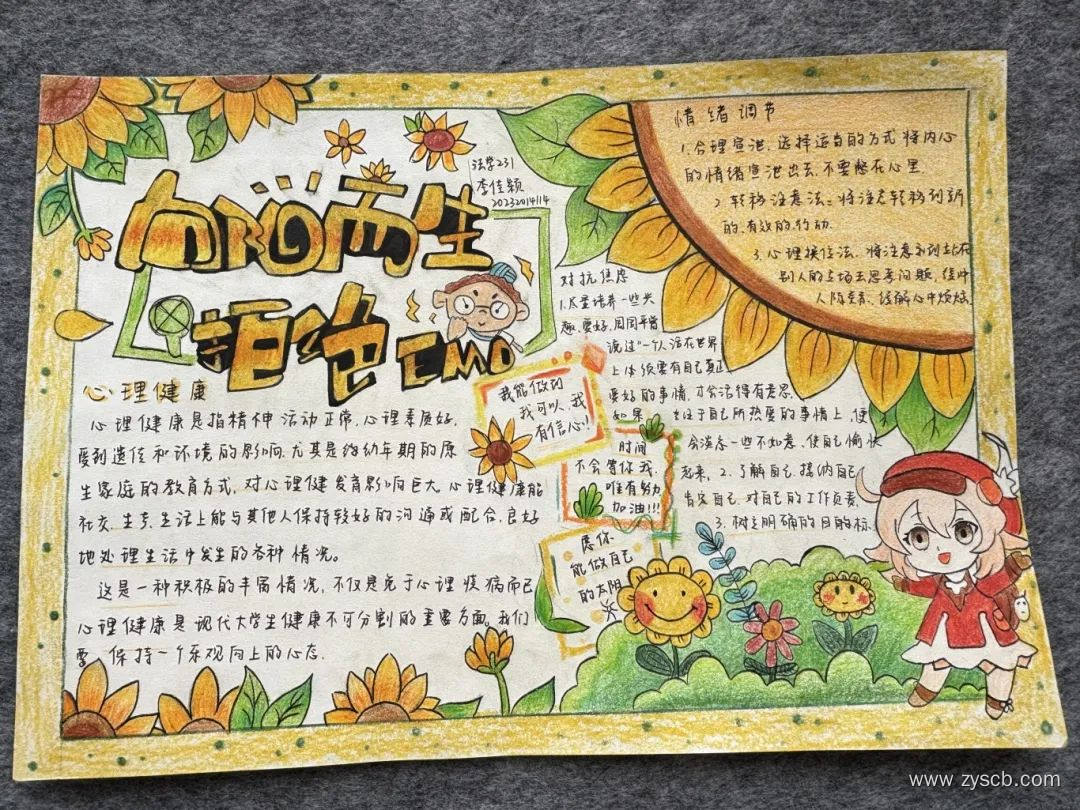 向阳而生
拒绝EMO
法学231
李佳颖
20232014114
心理健康
心理健康是指精神活动正常、心理素质好,
受到遗传和环境的影响,尤其是幼年期的原
生家庭的教育方式,对心理健发育影响巨大,心理健康能
社交、生产、生活上能与其他人保持较好的沟通或配合,良好
地处理生活中发生的各种情况。
这是一种积极的丰富情况,不仅是免于心理疾病而已
心理健康是现代大学生健康不可分割的重要方面,我们
要保持一个乐观向上的心态.
对抗焦虑
1.尽量培养一些兴
趣、要好,周国平曾
说过"一个人活在世界
上体须要有自己真正
爱好的事情,才会活得有意思,
如果 生于自己所热爱的事情上,便
会淡忘一些不如意,使自己愉快
起来,2.了解自己,接纳自己
肯定自己,对自己的工作负责,
3.树立明确的目的标,
我能做到
我可以,我
有信心!
时间
不会等你我,
唯有努力
加油!!!
愿你
能做自己
的太阳
情绪调节
1.合理宣泄,选择适当的方式将内心
的情绪宣泄出去,不要憋在心里.
2.转移注意法:将注意转移到新
的、有效的行动.
3.心理换位法,将注意力到站在
别人的立场去思考问题,缓冲
解心中烦恼
www.zyscb.com